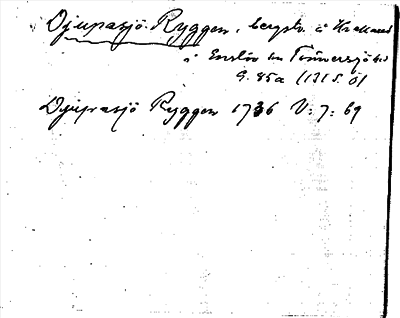 Djupasjö-Ryggen, bergstr. i Halland
i Enslöv sn Tönnersjö hd
G. 85a (1315.0)
Djupasjö Ryggen 1736 V: 7: 69